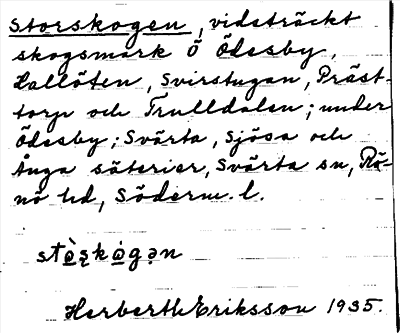 Storskogen, vidsträckt
skogsmark Ö Ödesby,
Hallöten, Svirstugan, Präst-
torp och Trulldalen; under
Ödesby; Svärta, Sjösa och
Ånga säterier, Svärta sn, Rö-
nö hd, Söderm. l.
stò̱ʂkó̱gən
Herberth Eriksson 1935.